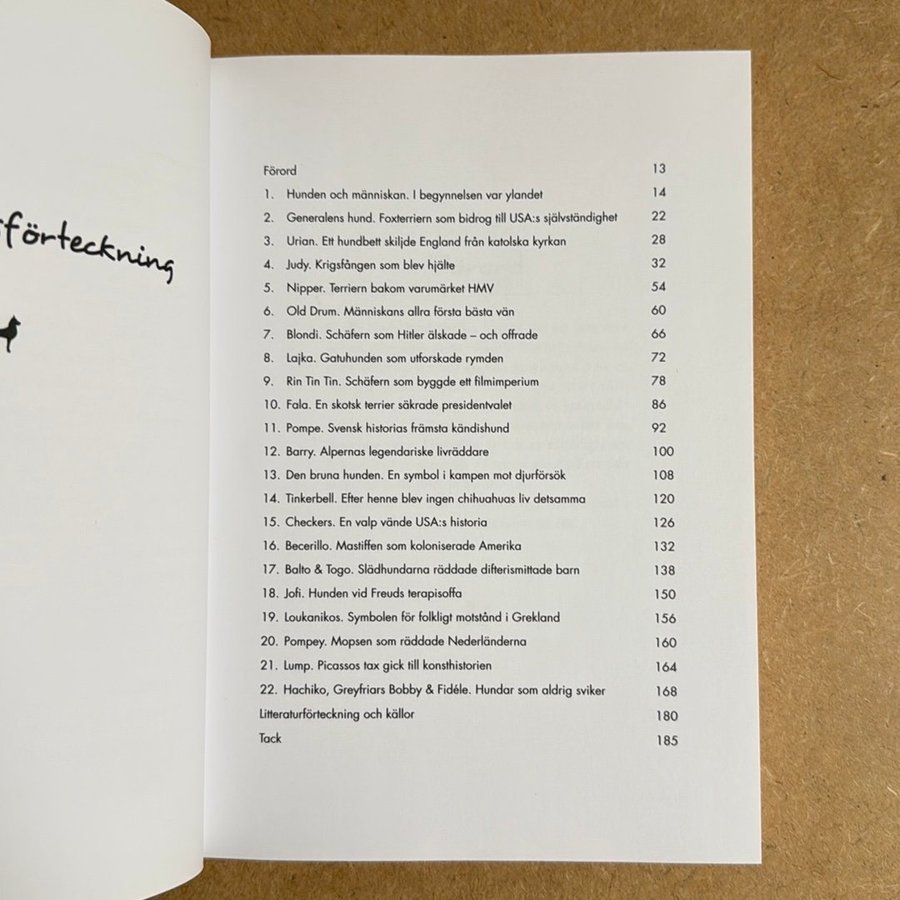 förteckning
Förord 13
1. Hunden och människan. I begynnelsen var ylandet 14
2. Generalens hund. Foxterriern som bidrog till USA:s självständighet 22
3. Urian. Ett hundbett skiljde England från katolska kyrkan 28
4. Judy. Krigsfången som blev hjälte 32
5. Nipper. Terriern bakom varumärket HMV 54
6. Old Drum. Människans allra första bästa vän 60
7. Blondi. Schäfern som Hitler älskade – och offrade 66
8. Lajka. Gatuhunden som utforskade rymden 72
9. Rin Tin Tin. Schäfern som byggde ett filmimperium 78
10. Fala. En skotsk terrier säkrade presidentvalet 86
11. Pompe. Svensk historias främsta kändishund 92
12. Barry. Alpernas legendariske livräddare 100
13. Den bruna hunden. En symbol i kampen mot djurförsök 108
14. Tinkerbell. Efter henne blev ingen chihuahuas liv detsamma 120
15. Checkers. En valp vände USA:s historia 126
16. Becerillo. Mastiffen som koloniserade Amerika 132
17. Balto & Togo. Slädhundarna räddade difterismittade barn 138
18. Jofi. Hunden vid Freuds terapisoffa 150
19. Loukanikos. Symbolen för folkligt motstånd i Grekland 156
20. Pompey. Mopsen som räddade Nederländerna 160
21. Lump. Picassos tax gick till konsthistorien 164
22. Hachiko, Greyfriars Bobby & Fidéle. Hundar som aldrig sviker 168
Litteraturförteckning och källor 180
Tack 185